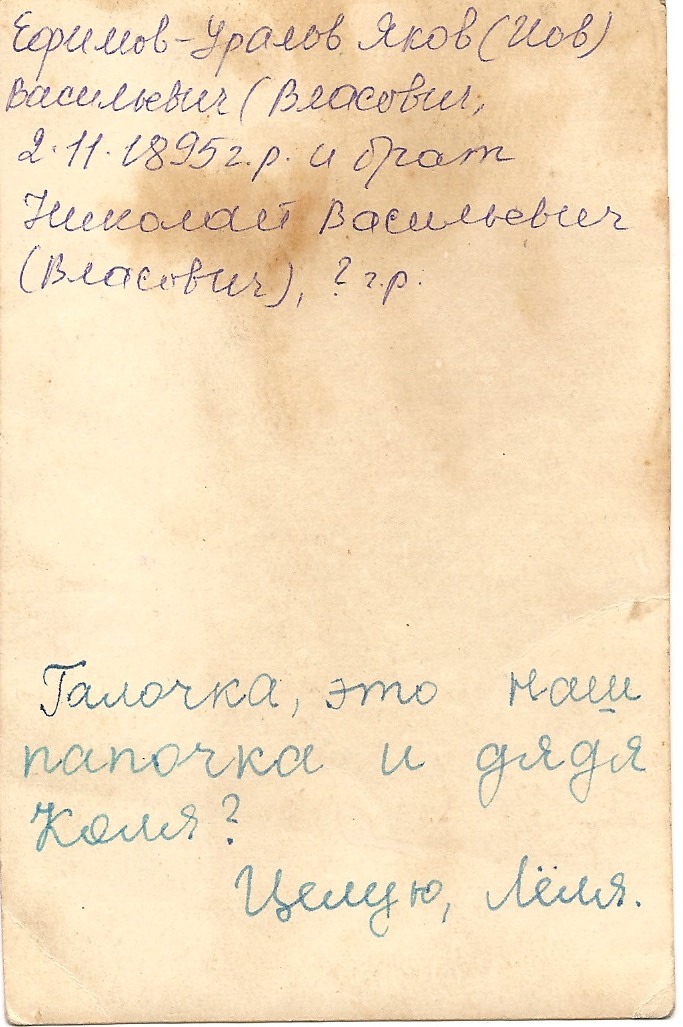 Ефимов-Уралов Яков (Иов)
Васильевич (Власович,
2.11.1895г.р. и брат
Николай Васильевич
(Власович), ? г.р.
Галочка, это наш
папочка и дядя
Коля?
Целую, Лёля.